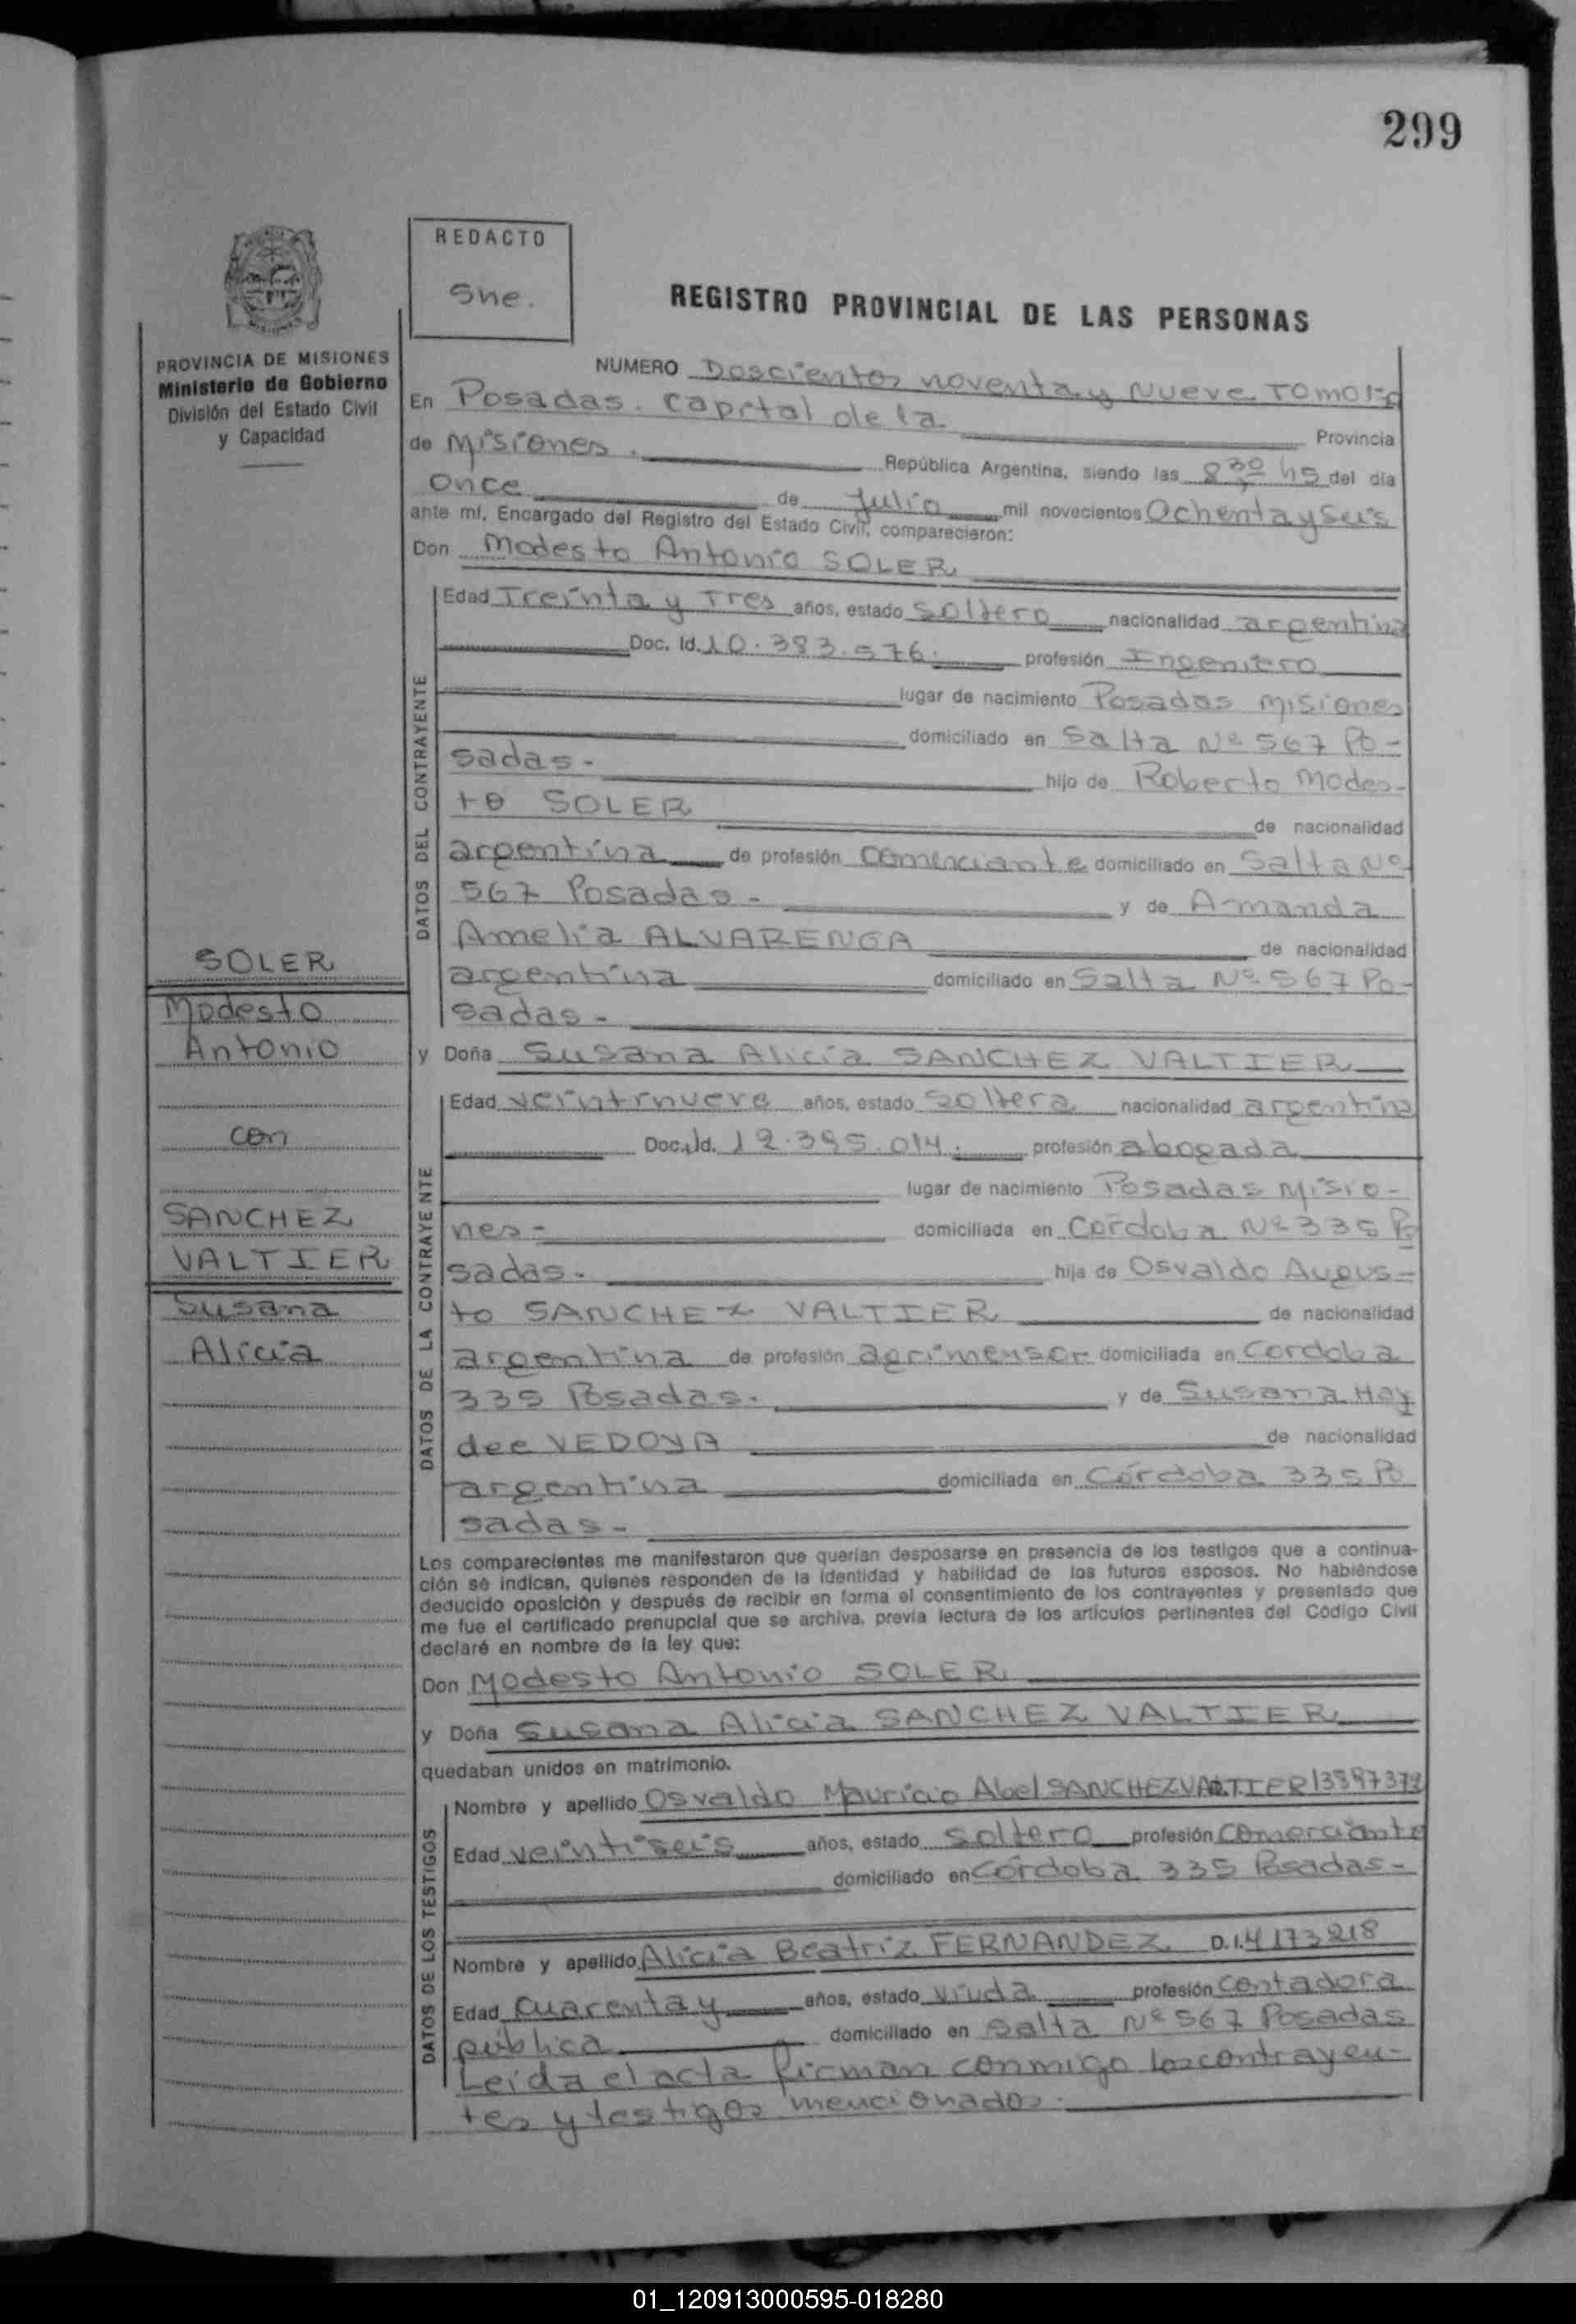 299
REDACTO
Sne.
REGISTRO PROVINCIAL DE LAS PERSONAS
PROVINCIA DE MISIONES
Ministerio de Gobierno
División del Estado Civil
y Capacidad
NUMERO Doscientos noventa y Nueve Tomo
En Posadas. Capital de la Provincia
de Misiones. República Argentina, siendo las 8,30 hs del día
Once de Julio mil novecientos Ochenta y seis
ante mí, Encargado del Registro del Estado Civil, comparecieron:
Don Modesto Antonio SOLER
DATOS DEL CONTRAYENTE
Edad Treinta y Tres años, estado soltero nacionalidad argentina
Doc. Id. 10.383.576. profesión Ingeniero
lugar de nacimiento Posadas Misiones
domiciliado en Salta Nº 567 Po-
sadas- hijo de Roberto Modes-
to SOLER de nacionalidad
argentina de profesión comerciante domiciliado en Salta Nº
567 Posadas- y de Amanda
Amelia ALVARENGA de nacionalidad
argentina domiciliado en Salta Nº 567 Po-
sadas-
SOLER
Modesto
Antonio
con
SANCHEZ
VALTIER
Susana
Alicia
y Doña Susana Alicia SANCHEZ VALTIER
DATOS DE LA CONTRAYENTE
Edad veintinueve años, estado soltera nacionalidad argentina
Doc. Id. 12.395.014. profesión abogada
lugar de nacimiento Posadas Misio-
nes- domiciliada en Córdoba Nº 335 Po
sadas- hija de Osvaldo Augus-
to SANCHEZ VALTIER de nacionalidad
argentina de profesión agrimensor domiciliada en Cordoba
335 Posadas. y de Susana Hay
dee VEDOYA de nacionalidad
argentina domiciliada en Córdoba 335 Po
sadas-
Los comparecientes me manifestaron que querían desposarse en presencia de los testigos que a continua-
ción se indican, quienes responden de la identidad y habilidad de los futuros esposos. No habiéndose
deducido oposición y después de recibir en forma el consentimiento de los contrayentes y presentado que
me fue el certificado prenupcial que se archiva, previa lectura de los artículos pertinentes del Código Civil
declaré en nombre de la ley que:
Don Modesto Antonio SOLER
y Doña Susana Alicia SANCHEZ VALTIER
quedaban unidos en matrimonio.
DATOS DE LOS TESTIGOS
Nombre y apellido Osvaldo Mauricio Abel SANCHEZ VALTIER
Edad veintiseis años, estado soltero profesión comerciante
domiciliado en Córdoba 335 Posadas-
Nombre y apellido Alicia Beatriz FERNANDEZ D.I. 4173218
Edad cuarenta y años, estado viuda profesión contadora
pública domiciliado en Salta Nº 567 Posadas
Leída el acta firman conmigo los contrayen-
tes y testigos mencionados.
01_120913000595-018280